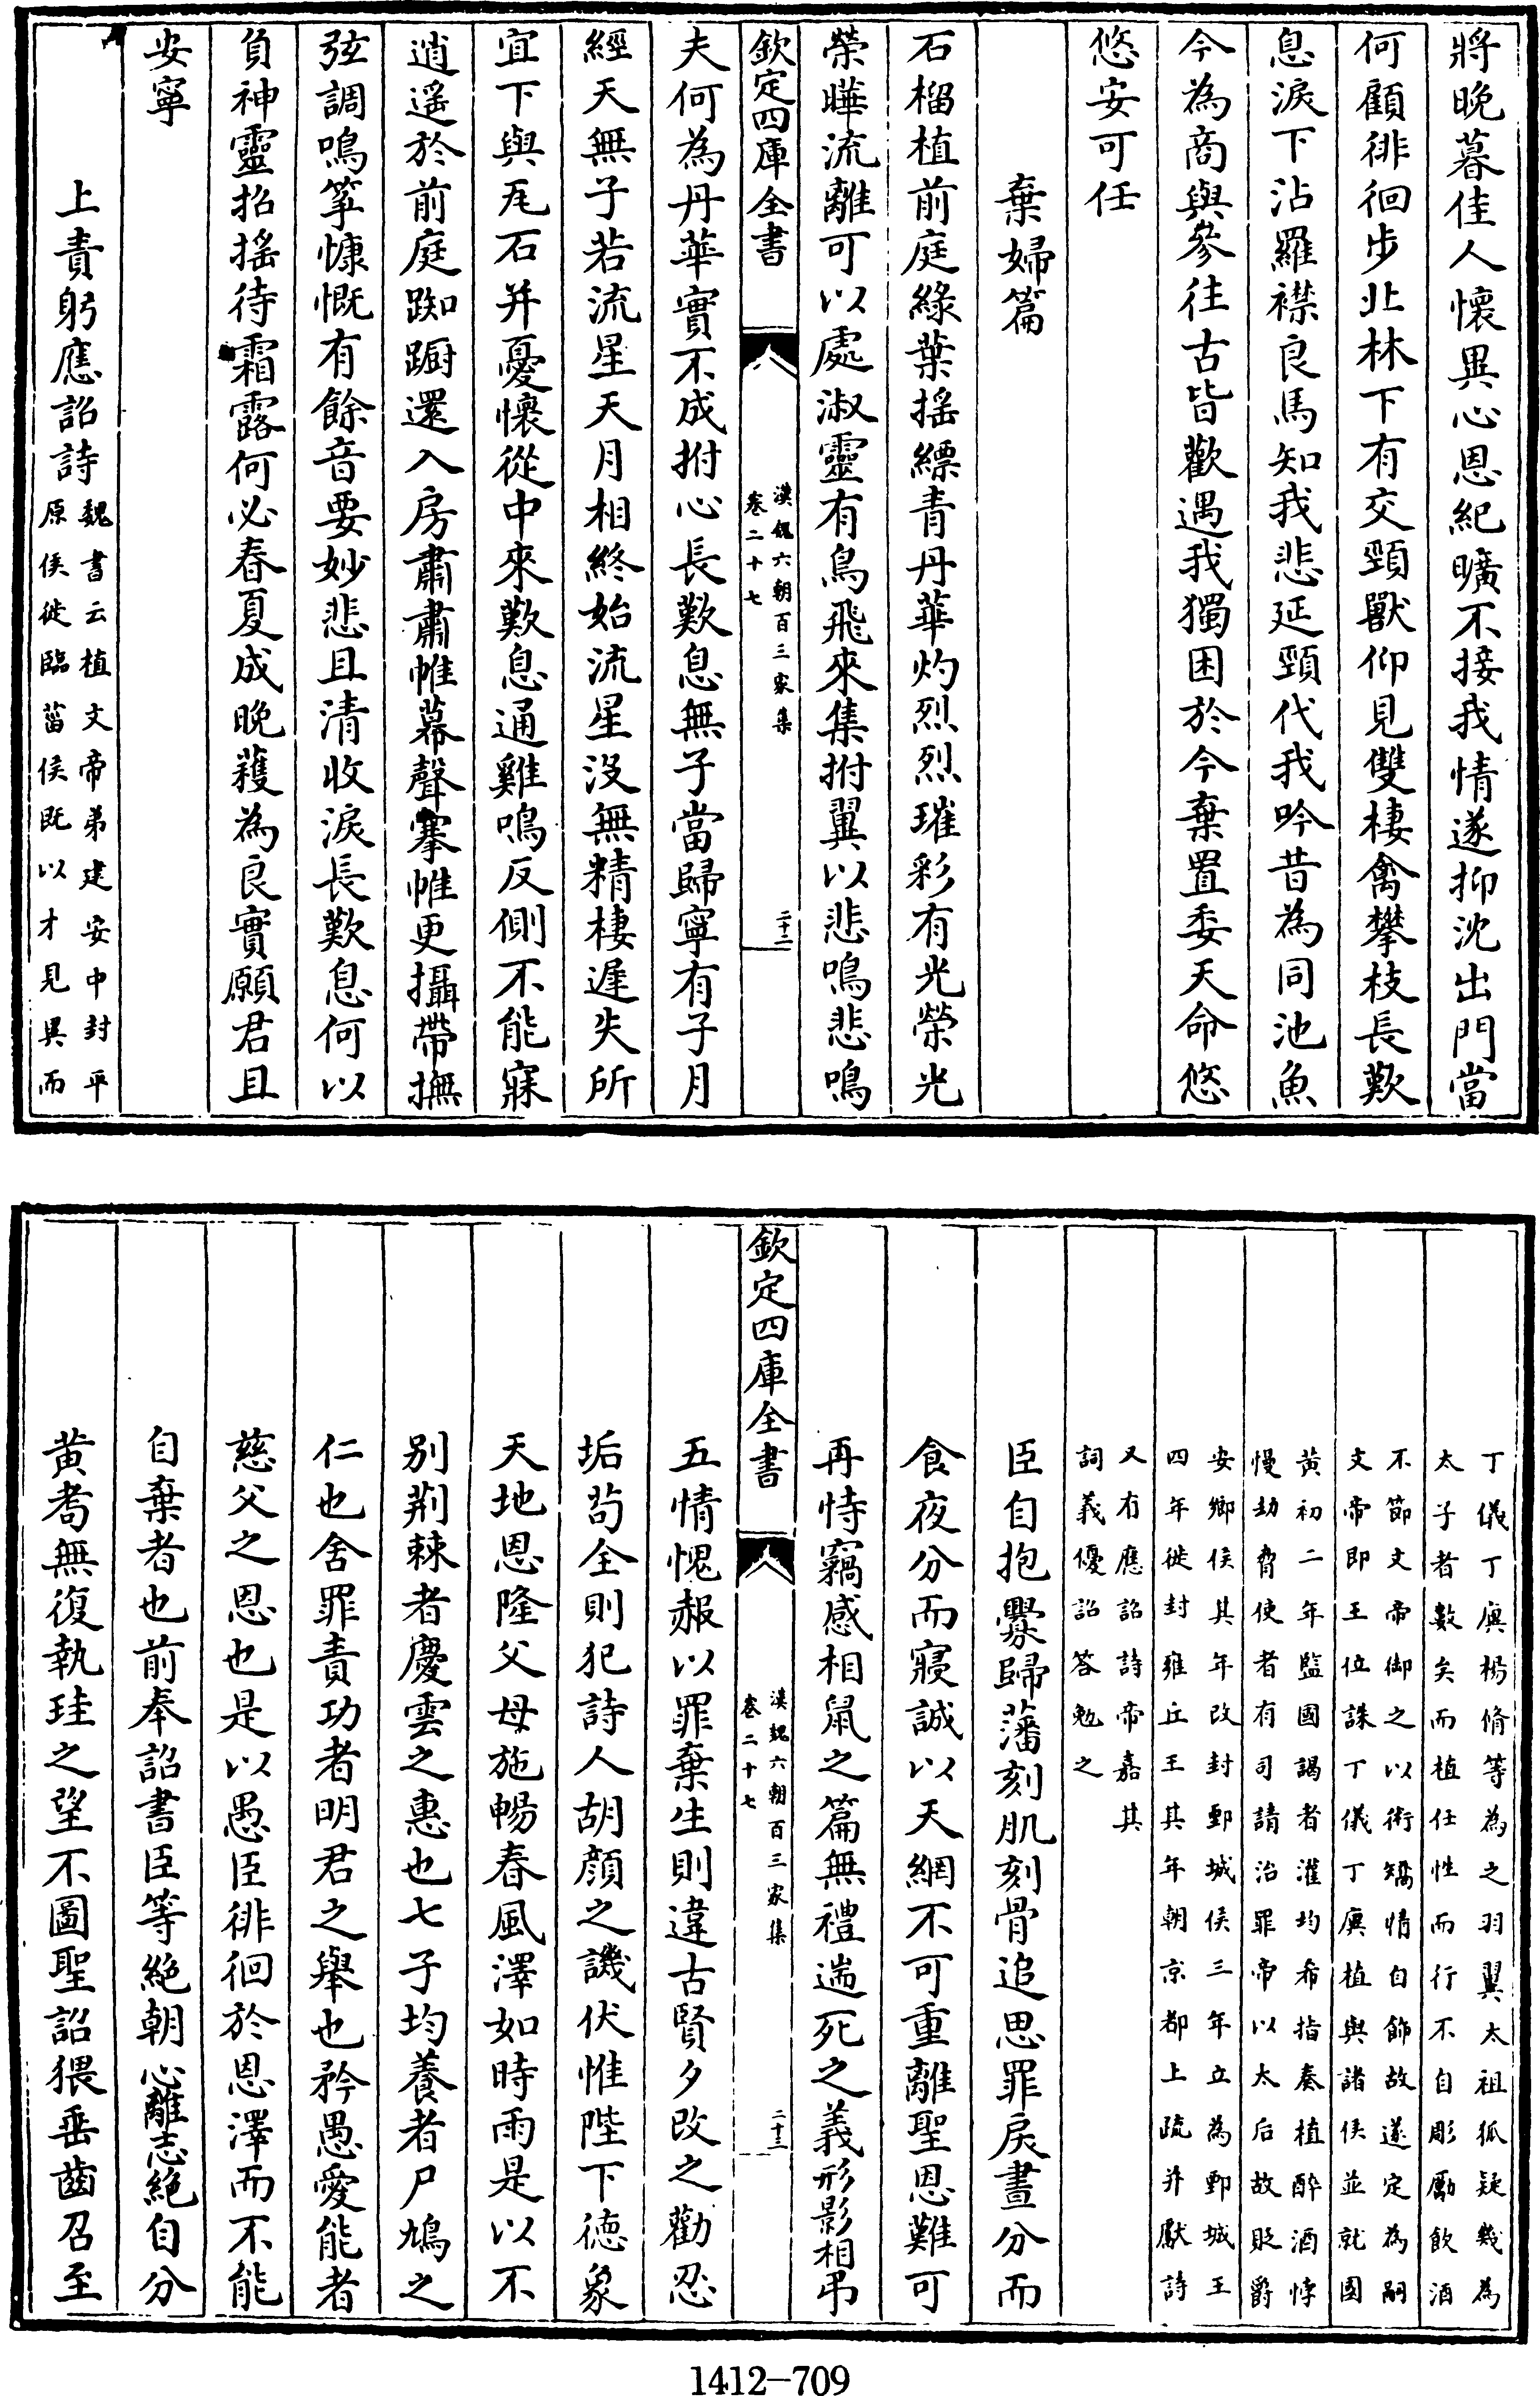 將晚暮佳人懷異心恩紀曠不接我情遂抑沈出門當
何顧徘徊步北林下有交頸獸仰見雙棲禽攀枝長歎
息淚下沾羅襟良馬知我悲延頸代我吟昔為同池魚
今為商與參往古皆歡遇我獨困於今棄置委天命悠
悠安可任
棄婦篇
石榴植前庭綠葉搖縹青丹華灼烈烈璀彩有光榮光
榮曄流離可以處淑靈有鳥飛來集拊翼以悲鳴悲鳴
欽定四庫全書
漢魏六朝百三家集
卷二十七
二十二
夫何為丹華實不成拊心長歎息無子當歸寧有子月
經天無子若流星天月相終始流星沒無精棲遲失所
宜下與瓦石并憂懷從中來歎息通雞鳴反側不能寐
逍遙於前庭踟躕還入房肅肅帷幕聲搴帷更攝帶撫
弦調鳴箏慷慨有餘音要妙悲且清收淚長歎息何以
負神靈招搖待霜露何必春夏成晚穫為良實願君且
安寧
上責躬應詔詩
魏書云植文帝弟建安中封平
原侯徙臨菑侯既以才見異而
丁儀丁廙楊脩等為之羽翼太祖狐疑幾為
太子者數矣而植任性而行不自彫勵飲酒
不節文帝御之以術矯情自飾故遂定為嗣
文帝即王位誅丁儀丁廙植與諸侯並就國
黃初二年監國謁者灌均希指奏植醉酒悖
慢劫脅使者有司請治罪帝以太后故貶爵
安鄉侯其年改封鄄城侯三年立為鄄城王
四年徙封雍丘王其年朝京都上疏并獻詩
又有應詔詩帝嘉其
詞義優詔答勉之
臣自抱釁歸藩刻肌刻骨追思罪戾晝分而
食夜分而寢誠以天網不可重離聖恩難可
再恃竊感相鼠之篇無禮遄死之義形影相弔
欽定四庫全書
漢魏六朝百三家集
卷二十七
二十三
五情愧赧以罪棄生則違古賢夕改之勸忍
垢茍全則犯詩人胡顏之譏伏惟陛下德象
天地恩隆父母施暢春風澤如時雨是以不
別荊棘者慶雲之惠也七子均養者尸鳩之
仁也舍罪責功者明君之舉也矜愚愛能者
慈父之恩也是以愚臣徘徊於恩澤而不能
自棄者也前奉詔書臣等絕朝心離志絕自分
黃耇無復執珪之望不圖聖詔猥垂齒召至
1412-709